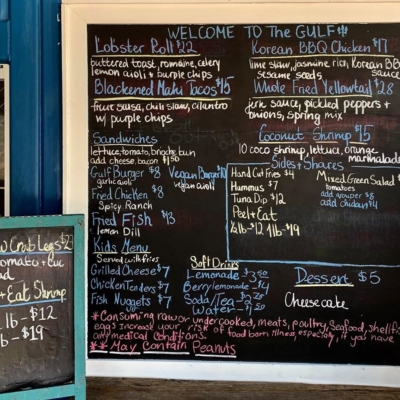 WELCOME TO THE GULF!!!
Lobster Roll $22
buttered toast, romaine, celery
lemon aioli + purple chips
Blackened Mahi Tacos $15
fruit salsa, chili slaw, cilantro
w/ purple chips
Sandwiches
lettuce, tomato, brioche bun
add cheese, bacon $1.50
Gulf Burger $8
garlic aioli
Vegan Burger $10
vegan aioli
Fried Chicken $8
Spicy Ranch
Fried Fish $13
Lemon Dill
Kids Menu
Served w/ fries
Grilled Cheese $7
Chicken Tenders $7
Fish Nuggets $7
Soft Drinks
Lemonade $3.50
Berry lemonade $4
Soda/Tea $2.50
Water
Korean BBQ Chicken $17
lime slaw, jasmine rice, Korean BBQ
sauce
sesame seeds
Whole Fried Yellowtail $28
jerk sauce, pickled peppers +
onions, spring mix
Coconut Shrimp $15
10 coco shrimp, lettuce, orange
marmalade
Sides + Shares
Hand Cut Fries $4
Hummus $7
Tuna Dip $12
Peel + Eat
1/2 lb - $12 1 lb - $19
Mixed Green Salad
tomatoes
add chicken $4
Dessert $5
Cheesecake
*Consuming raw or undercooked, meats, poultry, seafood, shellfish
eggs increase your risk of food born illness, especially if you have
any medical conditions.
**May Contain Peanuts
Crab Legs $2
omato + Luc
ad
+ Eat Shrimp
lb - $12
lb - $19